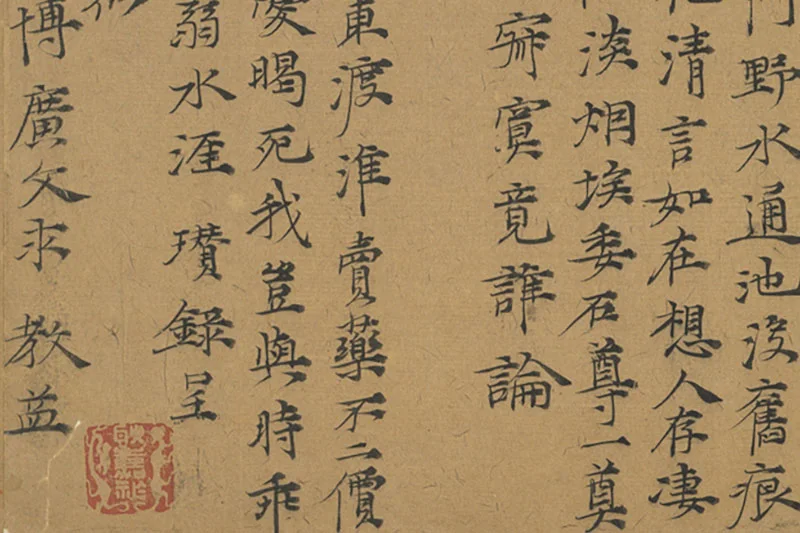 野水通池沒舊痕
清言如在想人存淒
淡烟埃委石尊一奠
寂寞竟誰論
東渡淮賣藥不二價
暍死我豈與時乖
翁水涯 瓚錄呈
博廣文求 教益